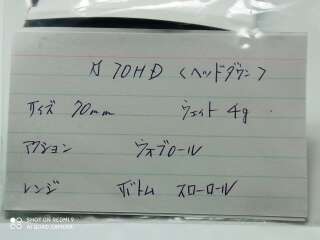 70HD <ヘッドダウン>
サイズ 70mm ウェイト 4g
アクション ウォブロール
レンジ ボトム スローロール
SHOT ON REDMI 9
AI QUAD CAMERA